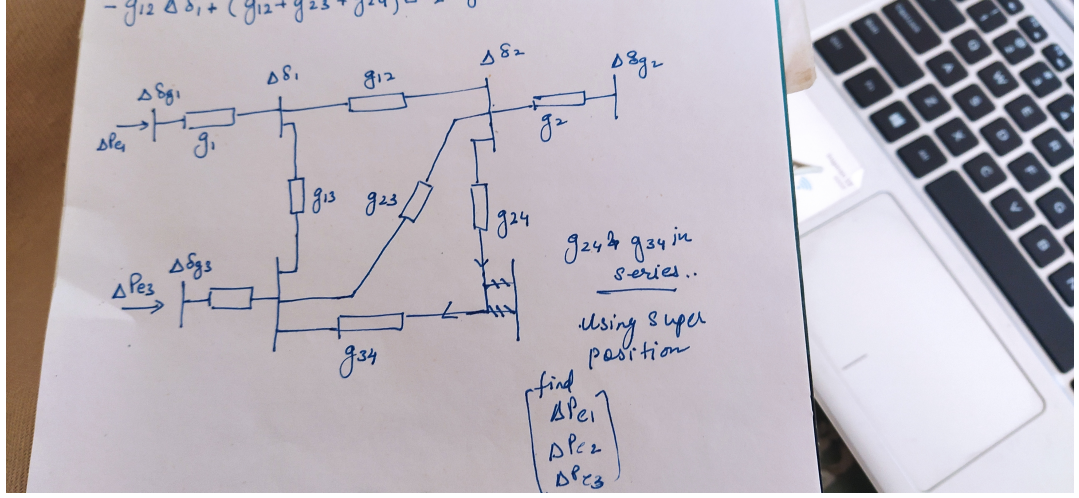 - g12 Δδ1 + (g12 + g23 + g24)
Δδ1
g12
Δδ2
Δδg2
Δδg1
ΔPe1
g1
g2
g13
g23
g24
Δδg3
ΔPe3
g34
g24 & g34 in
series..
Using Super
position
find
ΔPe1
ΔPe2
ΔPe3